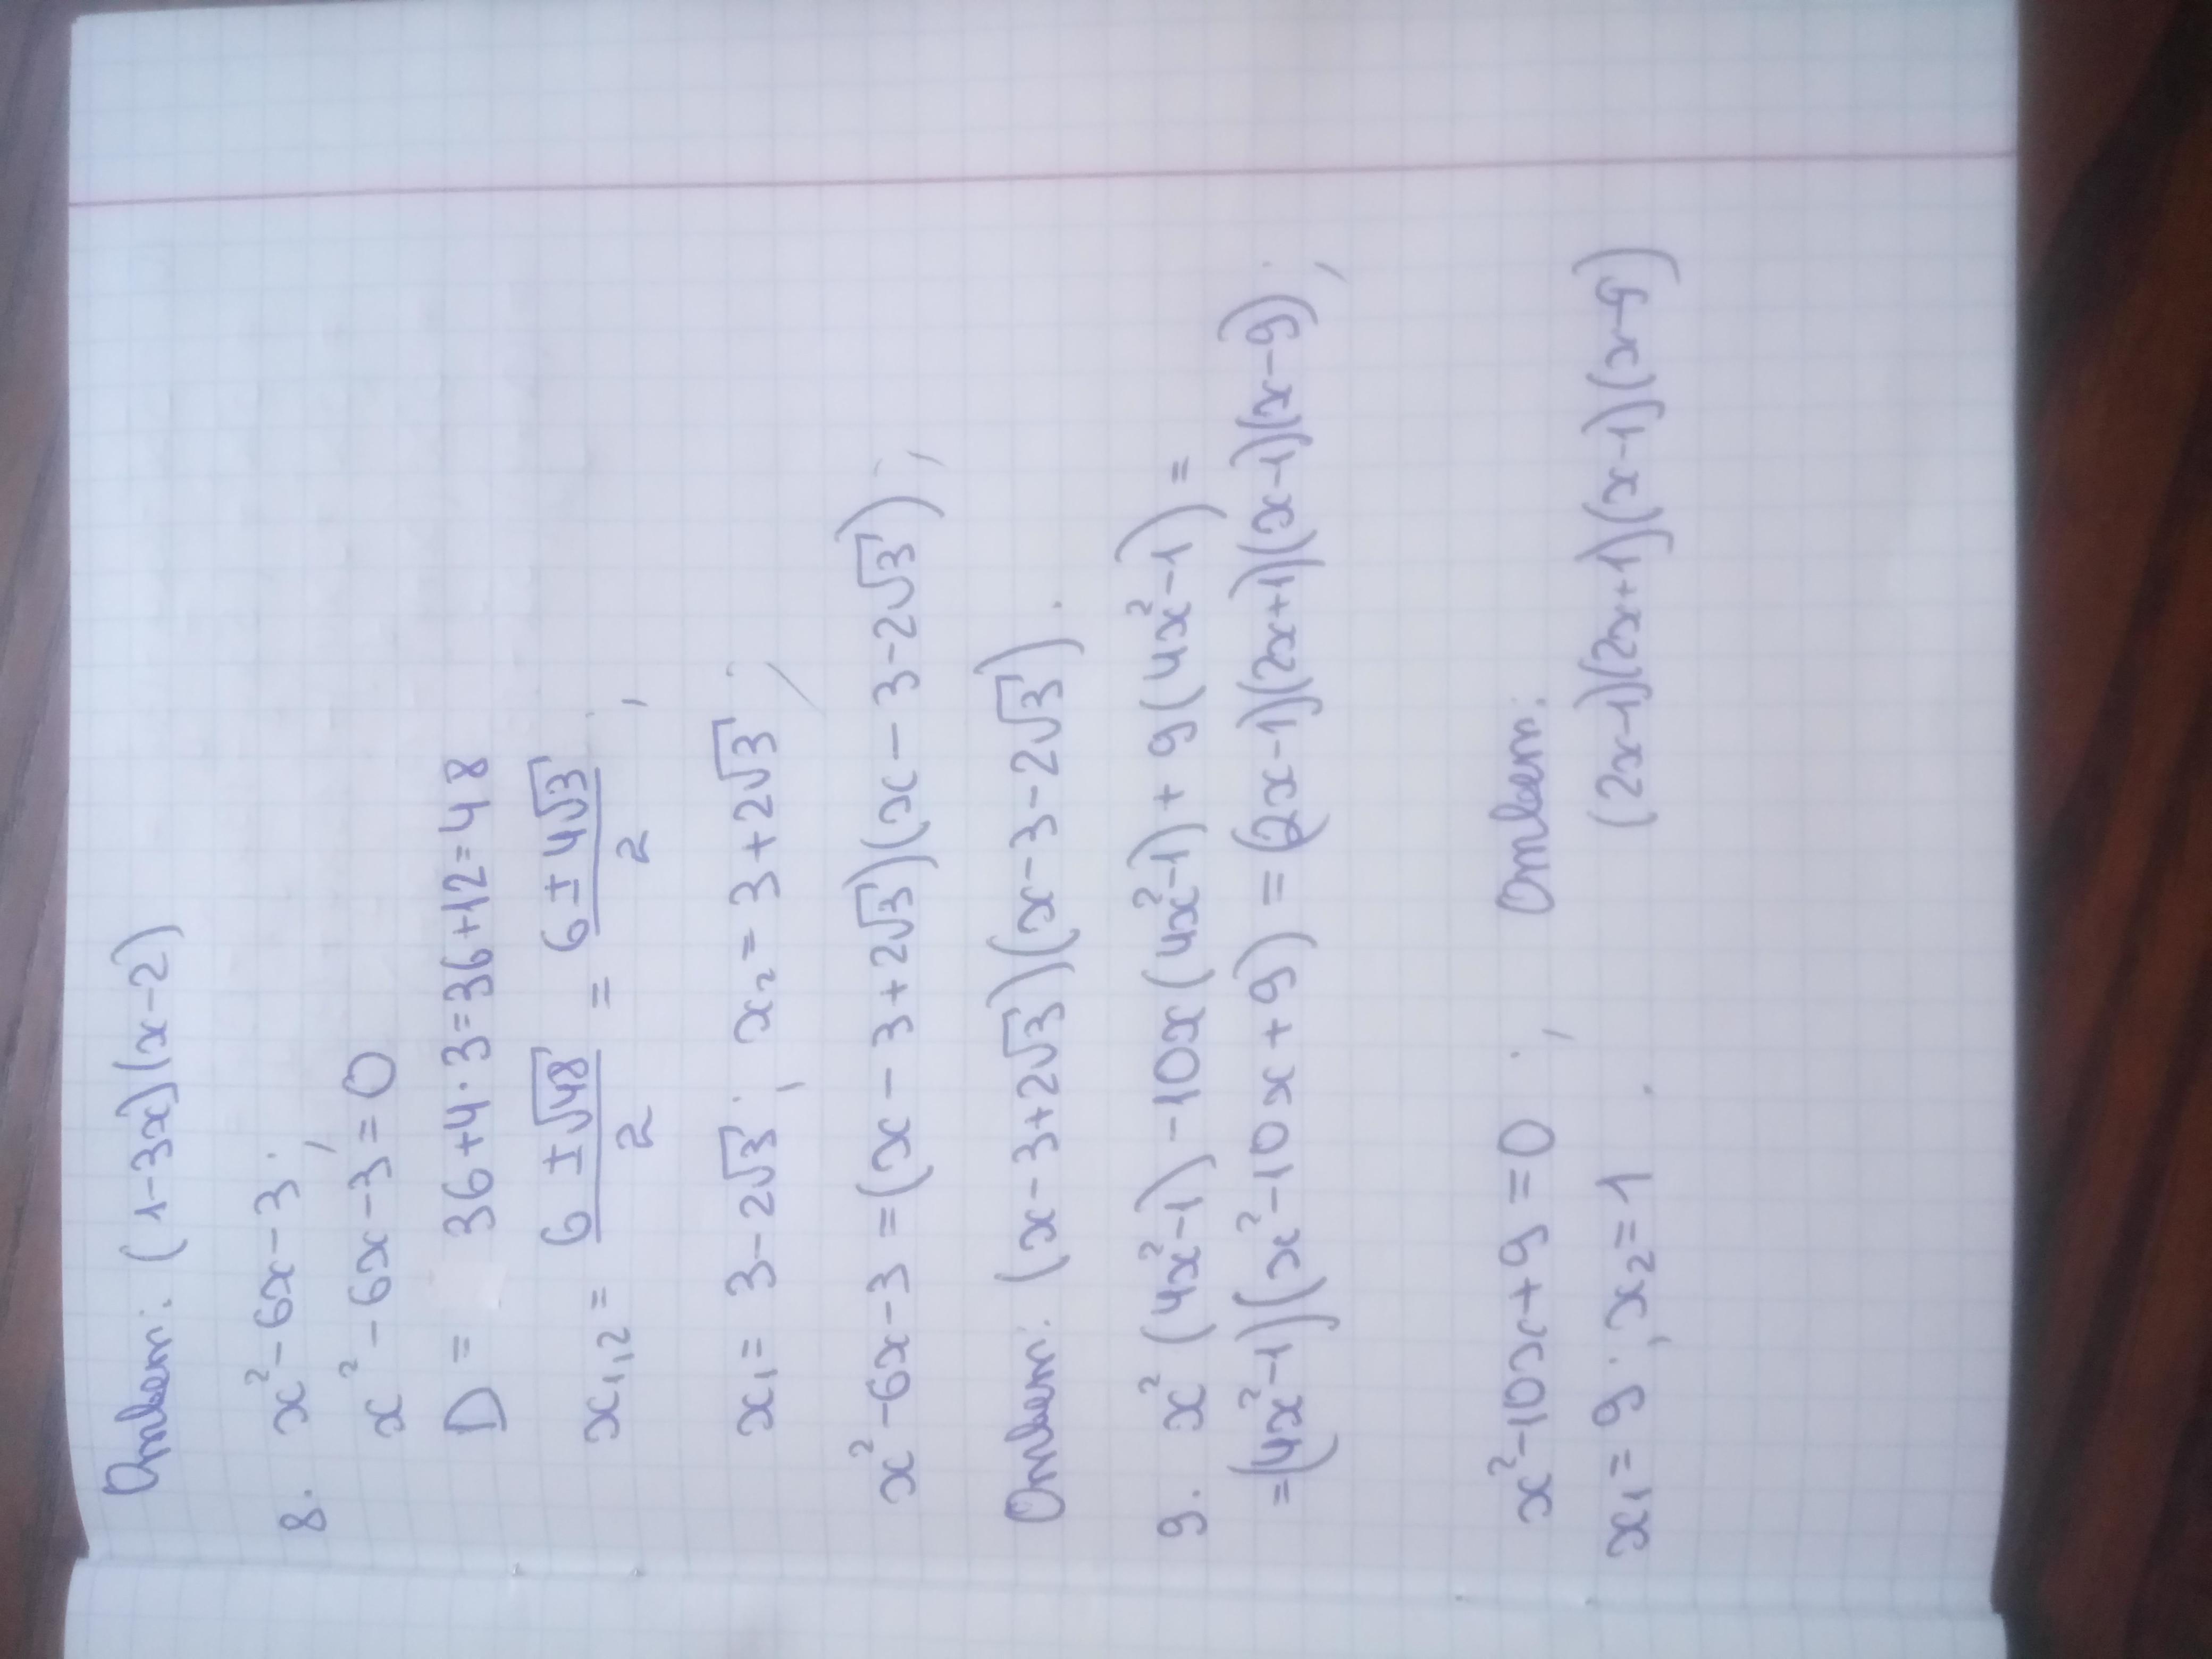 Ответ: (1-3x)(x-2)
8. x²-6x-3;
x²-6x-3=0
D= 36+4·3=36+12=48
x₁,₂= (6±√48)/2 = (6±4√3)/2;
x₁= 3-2√3; x₂=3+2√3;
x²-6x-3=(x-3+2√3)(x-3-2√3);
Ответ: (x-3+2√3)(x-3-2√3).
9. x²(4x²-1)-10x(4x²-1)+9(4x²-1)=
=(4x²-1)(x²-10x+9)=(2x-1)(2x+1)(x-1)(x-9);
x²-10x+9=0; Ответ:
x₁=9; x₂=1. (2x-1)(2x+1)(x-1)(x-9)